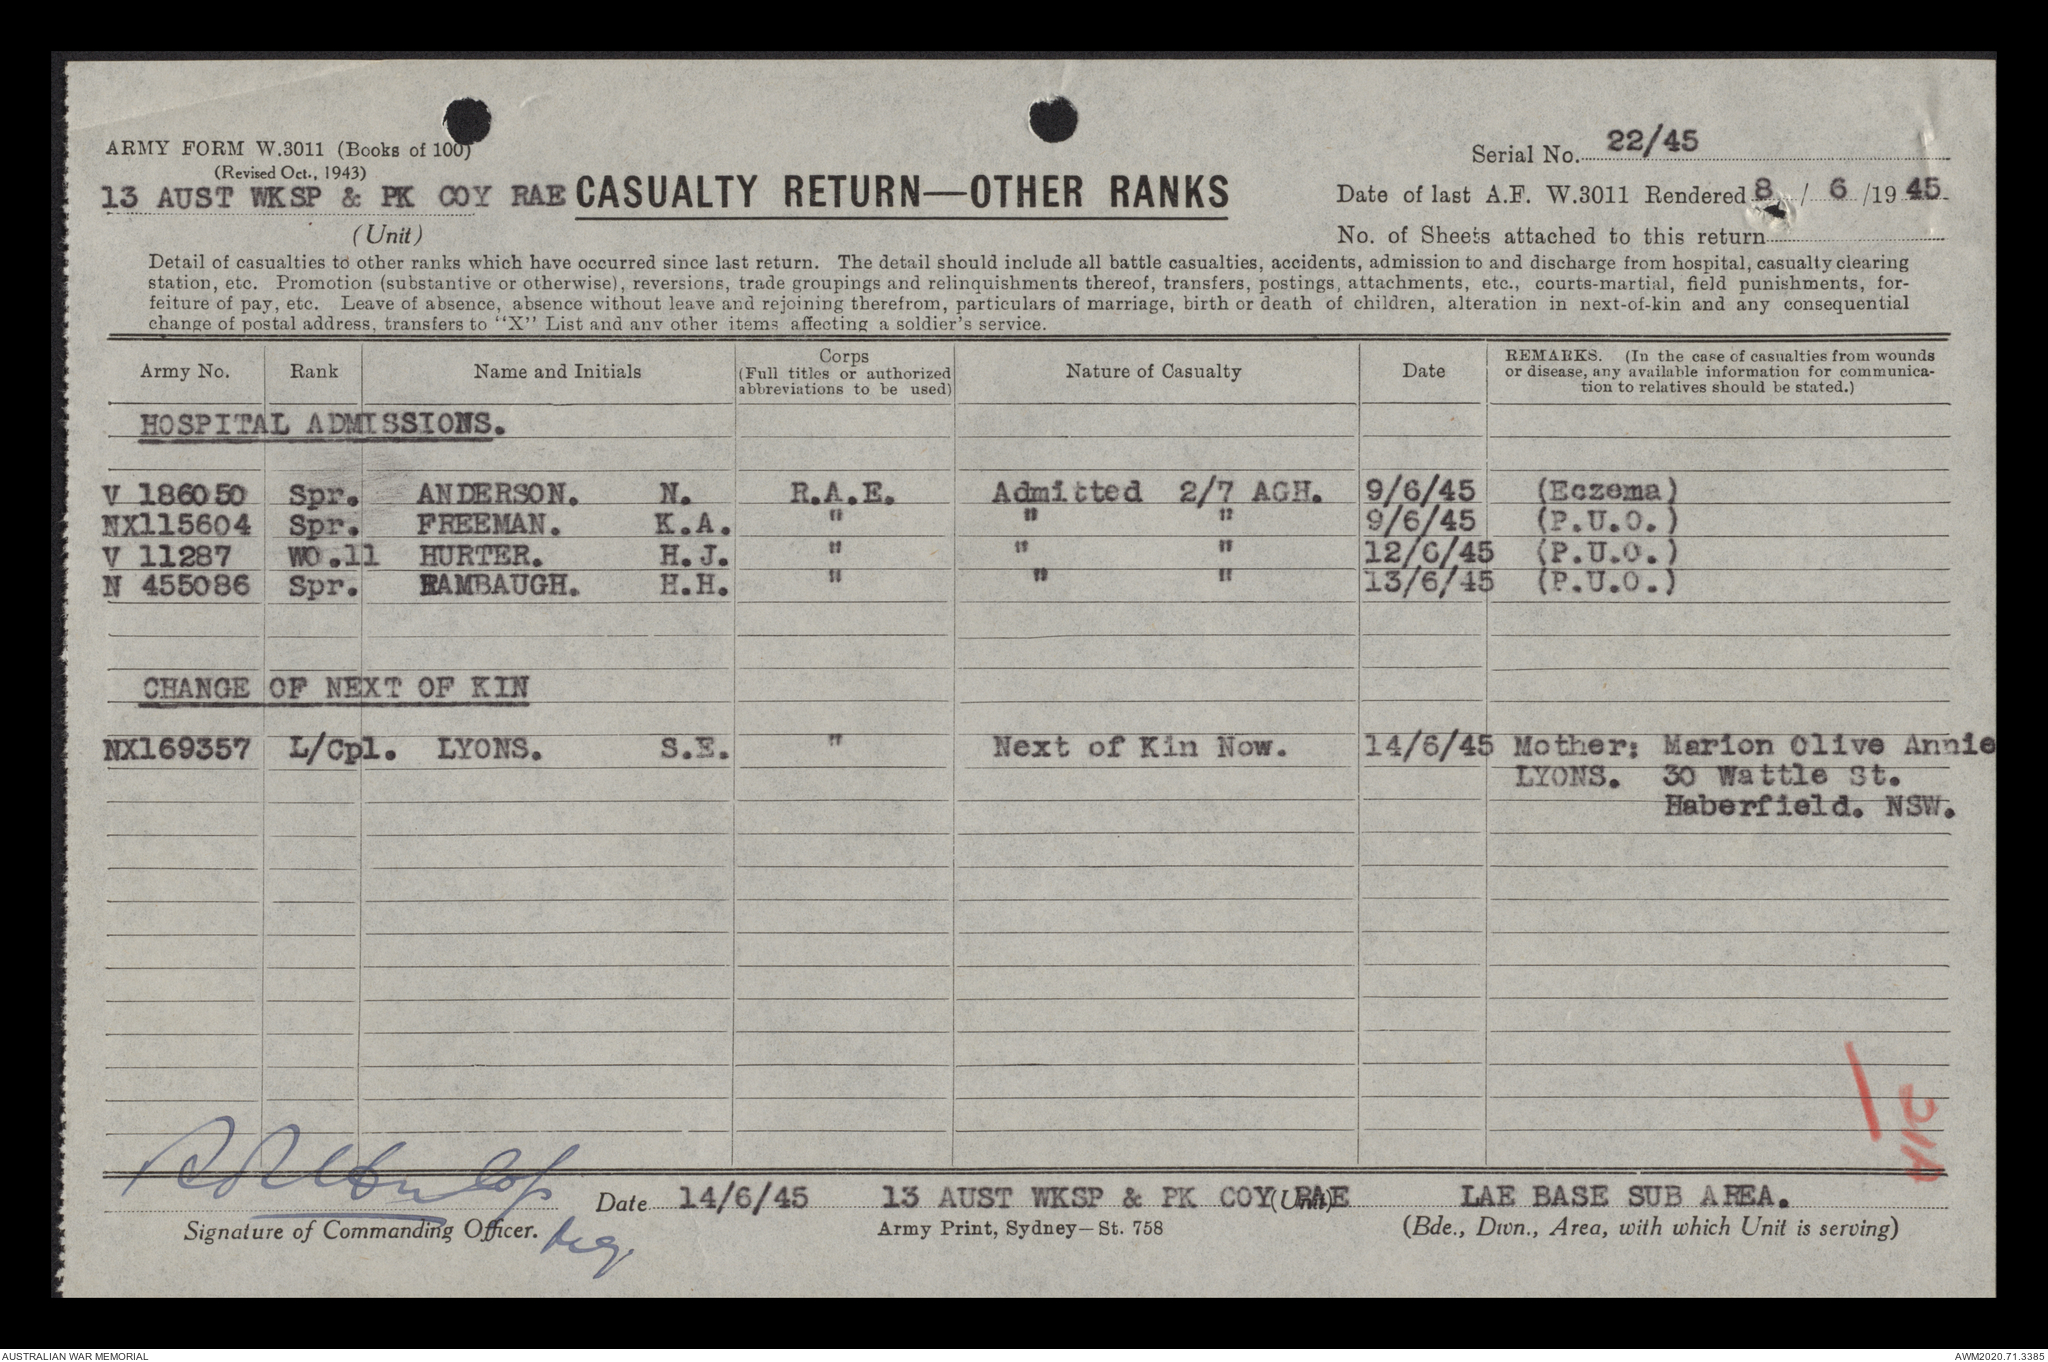 ARMY FORM W.3011 (Books of 100)
(Revised Oct., 1943)
13 AUST WKSP & PK COY RAE
(Unit)
CASUALTY RETURN—OTHER RANKS
Serial No. 22/45
Date of last A.F. W.3011 Rendered 8 / 6 /19 45
No. of Sheets attached to this return
Detail of casualties to other ranks which have occurred since last return. The detail should include all battle casualties, accidents, admission to and discharge from hospital, casualty clearing
station, etc. Promotion (substantive or otherwise), reversions, trade groupings and relinquishments thereof, transfers, postings, attachments, etc., courts-martial, field punishments, for-
feiture of pay, etc. Leave of absence, absence without leave and rejoining therefrom, particulars of marriage, birth or death of children, alteration in next-of-kin and any consequential
change of postal address, transfers to "X" List and any other items affecting a soldier's service.
Army No. Rank Name and Initials Corps (Full titles or authorized abbreviations to be used) Nature of Casualty Date REMARKS. (In the case of casualties from wounds or disease, any available information for communica-tion to relatives should be stated.)
HOSPITAL ADMISSIONS.
V 186050 Spr. ANDERSON. N. R.A.E. Admitted 2/7 AGH. 9/6/45 (Eczema)
NX115604 Spr. FREEMAN. K.A. " " " 9/6/45 (P.U.O.)
V 11287 WO.11 HURTER. H.J. " " " 12/6/45 (P.U.O.)
N 455086 Spr. RAMBAUGH. H.H. " " " 13/6/45 (P.U.O.)
CHANGE OF NEXT OF KIN
NX169357 L/Cpl. LYONS. S.E. " Next of Kin Now. 14/6/45 Mother: Marion Olive Annie
LYONS. 30 Wattle St.
Haberfield. NSW.
Date 14/6/45 13 AUST WKSP & PK COY RAE (Unit) LAE BASE SUB AREA.
Signature of Commanding Officer. Army Print, Sydney—St. 758 (Bde., Divn., Area, with which Unit is serving)
AUSTRALIAN WAR MEMORIAL
AWM2020.71.3385